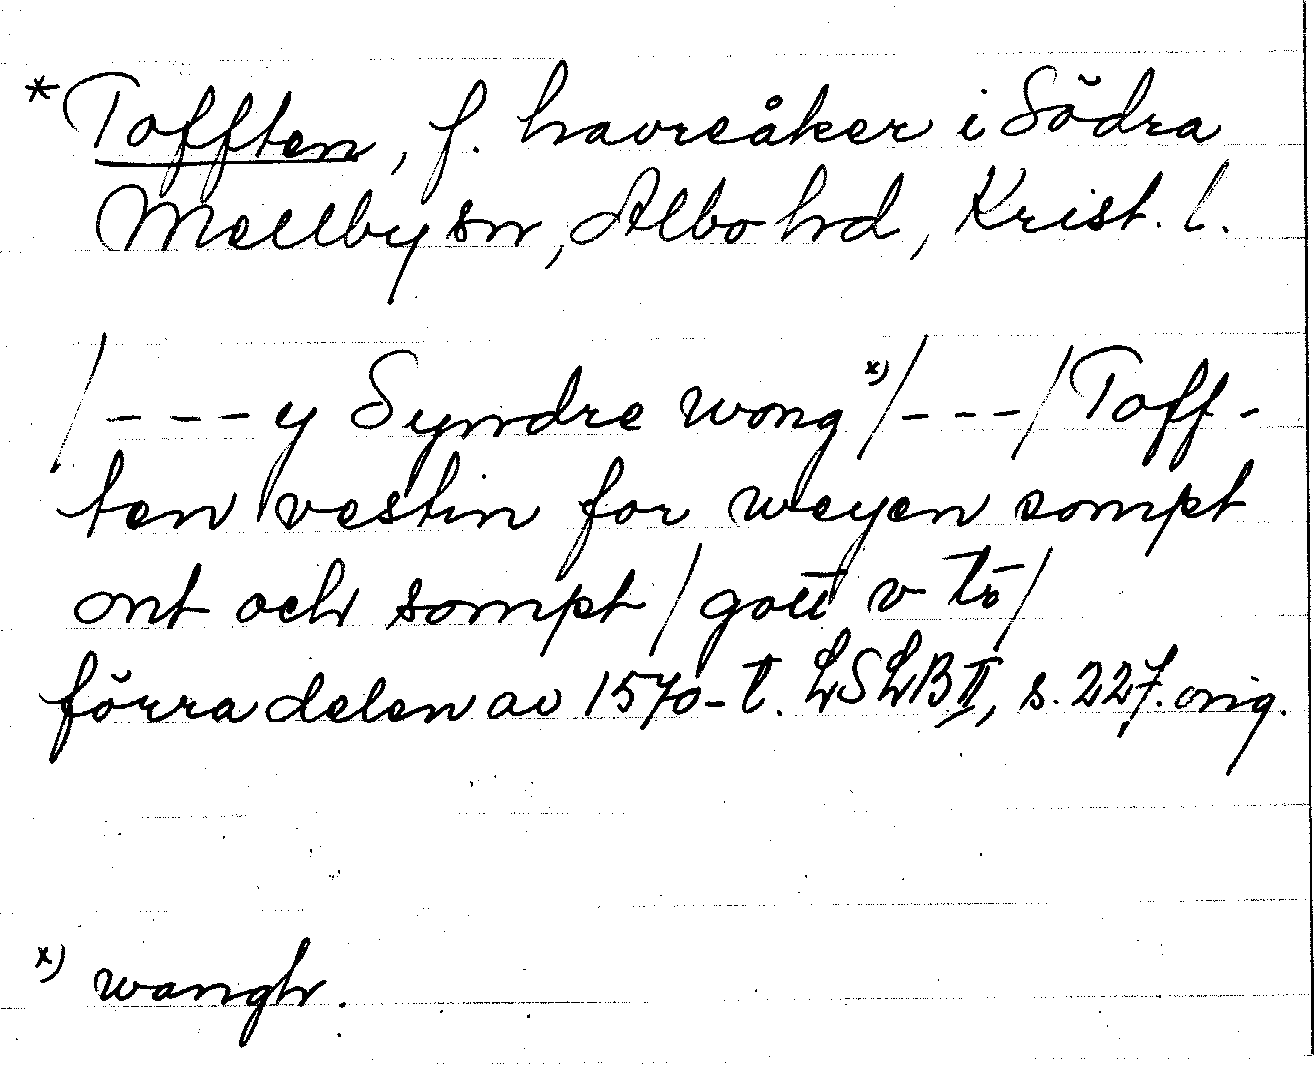 * Tofften, f. havreåker i Södra
Mellby sn, Albo hd, Krist. l.
/---y Syndre wong x)/---/Toff-
ten vestin for weyen sompt
ont och sompt/gott v tō/
förra delen av 1570-t. LSLB II, s. 227. orig.
x) wangh.